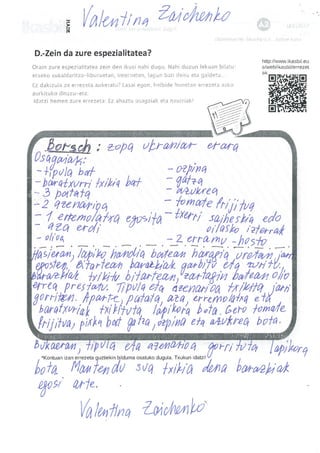 Valentina Zaichenko
ikasbil
A2
D.-Zein da zure espezialitatea?
Orain zure espezialitatea zein den ikusi nahi dugu. Nahi duzun lekuan bilatu:
etxeko sukaldaritza-liburuetan, interneten, lagun bati deitu eta galdetu...
Ez dakizu ze errezeta aukeratu? Lasai egon, hiztegi honetan errezeta asko
aurkituko dituzu-eta.
Idatzi hemen zure errezeta! Ez ahaztu osagaiak eta neurriak!
Borsch: zopa ukraniar erara
Osagaiak:
- tipula bat
- baratxurri txikia bat
- 3 patata
- 2 azenarioa
- 1 erremolatxa egosita
- aza erdi
- olioa
- ozpina
- gatza
- azukrea
- tomate frijitua
- txerri saiheskia edo
oilasko izterrak
- 2 erramu-hosto
Hasieran, lapiko handia batean haragia uretan jarri
egosten. Bitartean barazkiak garbitu eta zuritu.
Barazkiak txikitu bitartean, zartagin batean olio
erre a prestatu. Tipula eta azenarioa txikita jarri
gorritzen. Aparte, patata, aza, erremolatxa eta
baratxuriak txikituta lapikora bota. Gero tomate
frijitua, pixka bat gatza, ozpina eta azukrea bota.
Bukaeran, tipula eta azenarioa gorrituta lapikora
*Kontuan izan errezeta guztiekin bilduma osatuko dugula. Txukun idatzi!
bota. Mantendu sua txikia dena barazkiak
egosi arte.
Valentina Zaichenko